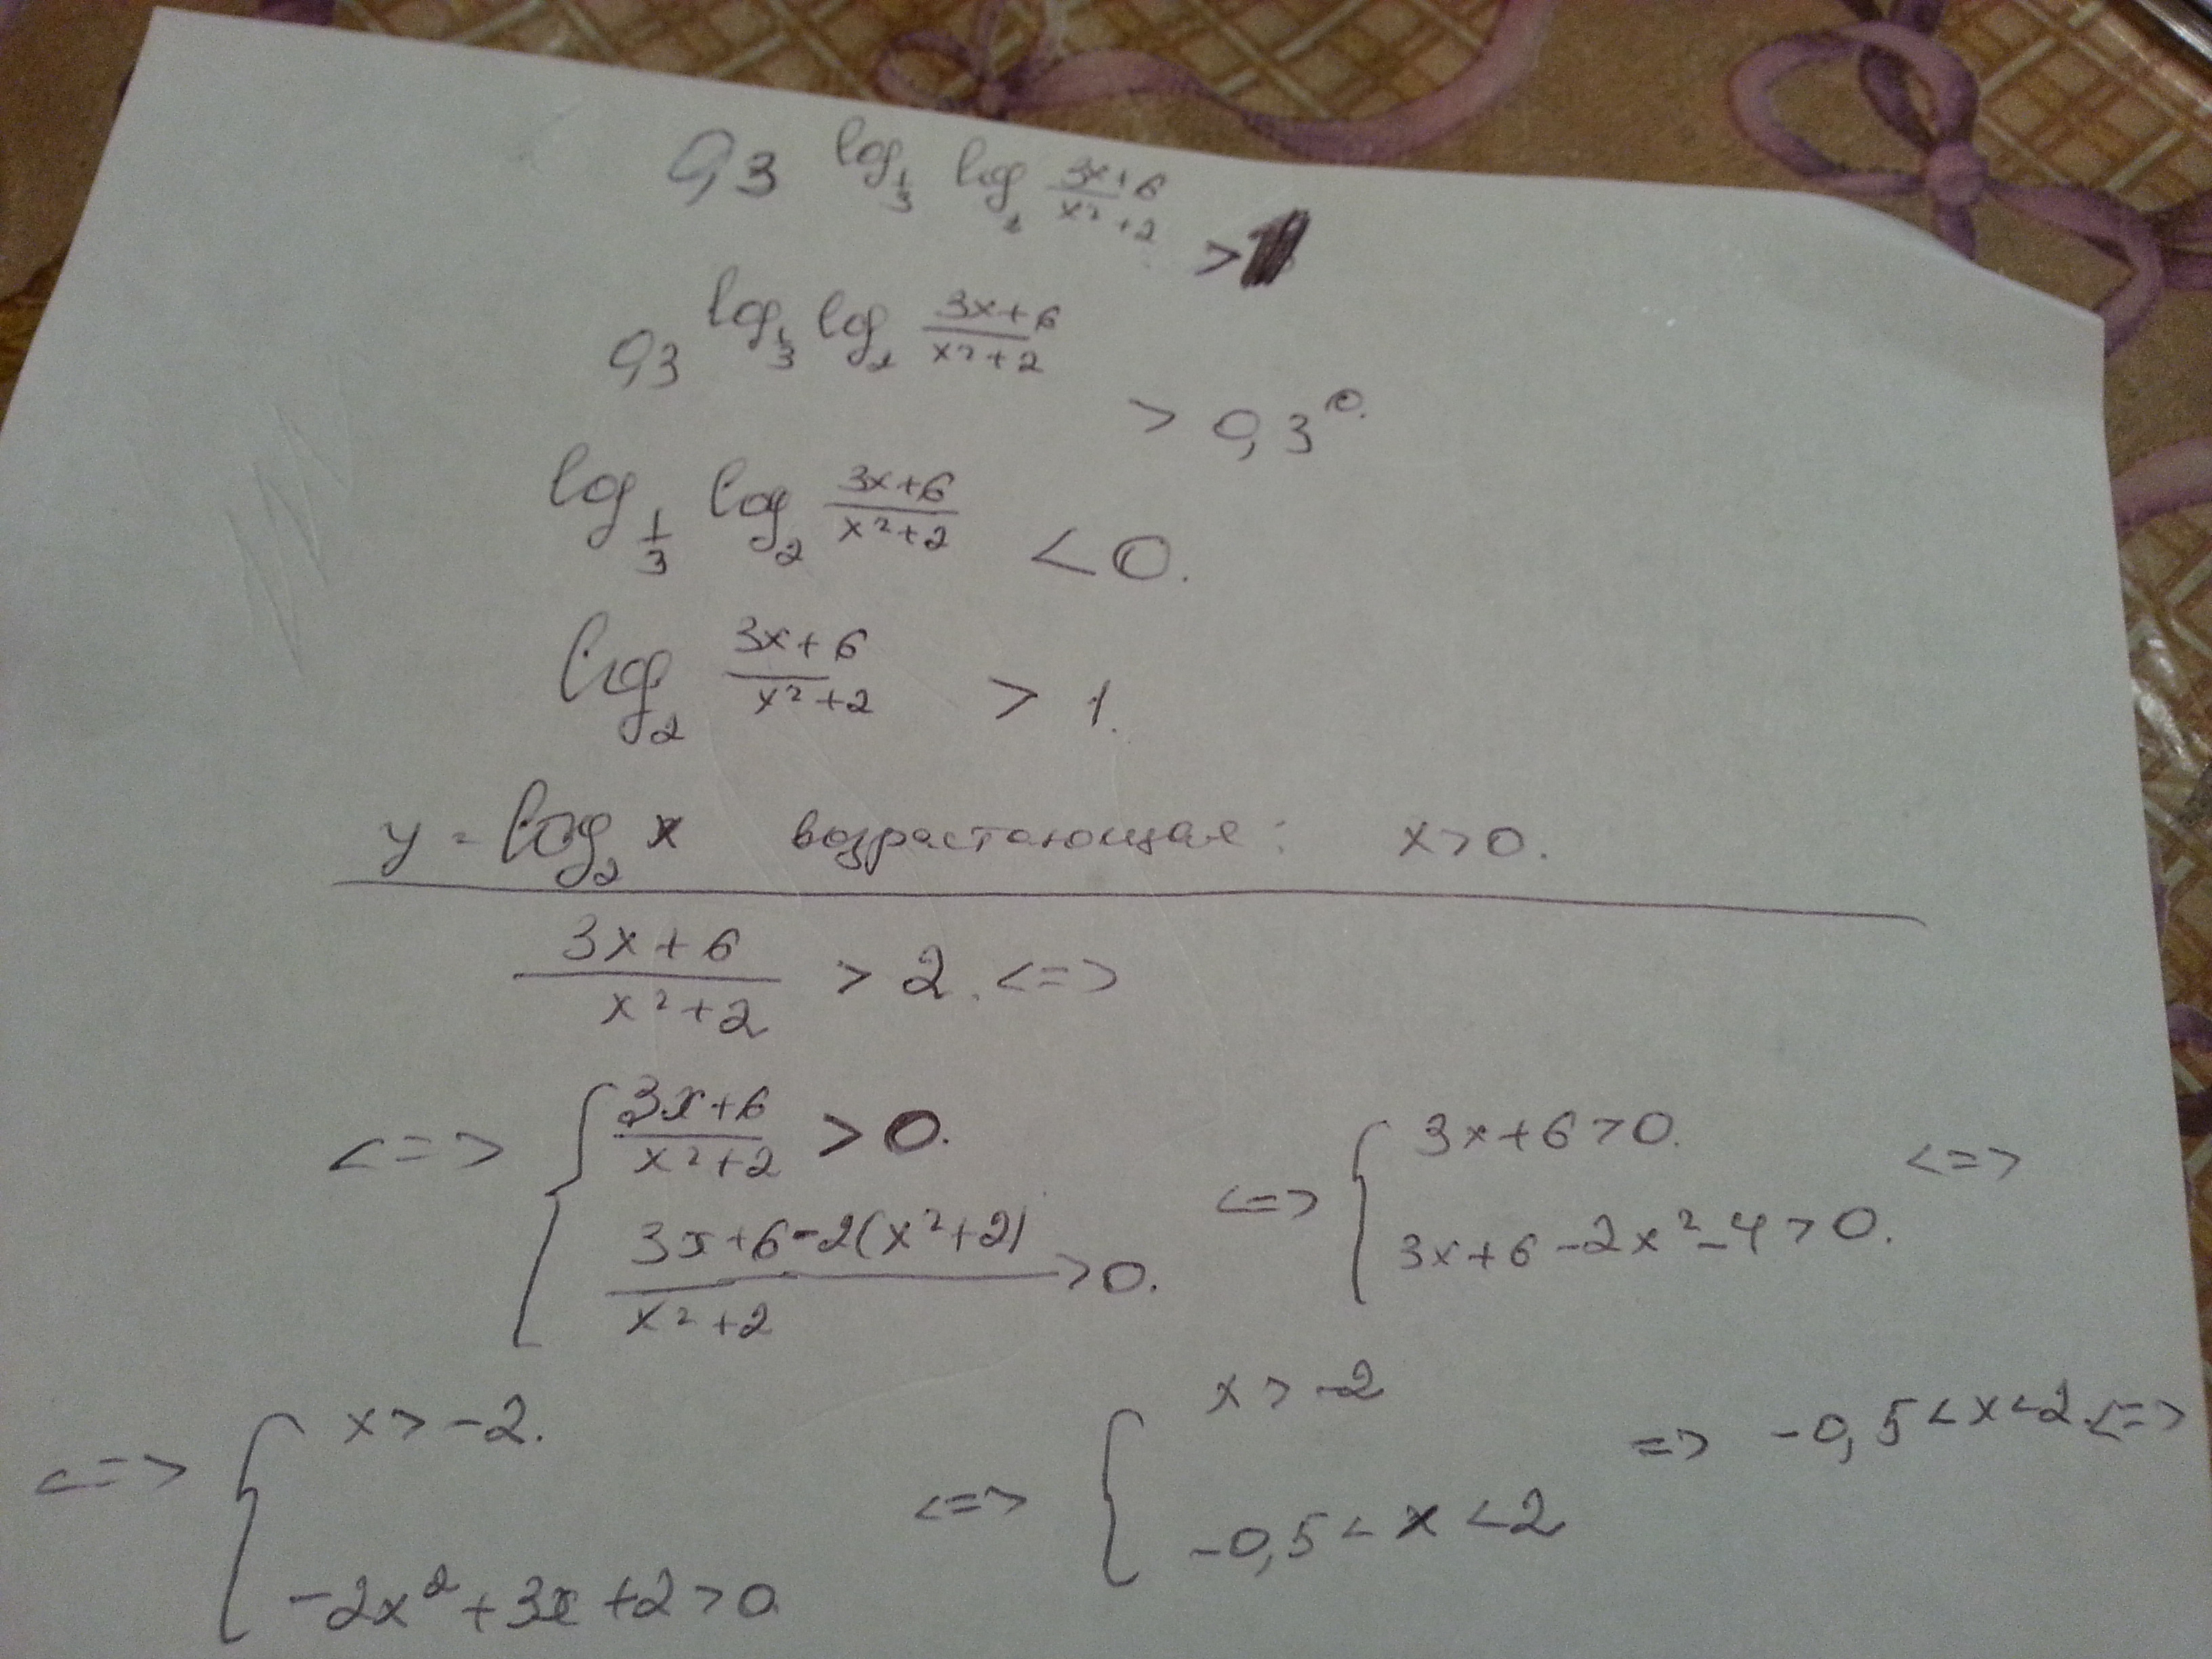 0,3^{log_{1/3} log_2 (3x+6)/(x²+2)} > 1
0,3^{log_{1/3} log_2 (3x+6)/(x²+2)} > 0,3^0.
log_{1/3} log_2 (3x+6)/(x²+2) < 0.
log_2 (3x+6)/(x²+2) > 1.
y = log_2 x возрастающая: x>0.
(3x+6)/(x²+2) > 2. <=>
<=> { (3x+6)/(x²+2) > 0. (3x+6-2(x²+2))/(x²+2) > 0. <=> { 3x+6>0. 3x+6-2x²-4>0. <=>
<=> { x>-2. -2x²+3x+2>0 <=> { x>-2 -0,5<x<2 => -0,5<x<2. <=>